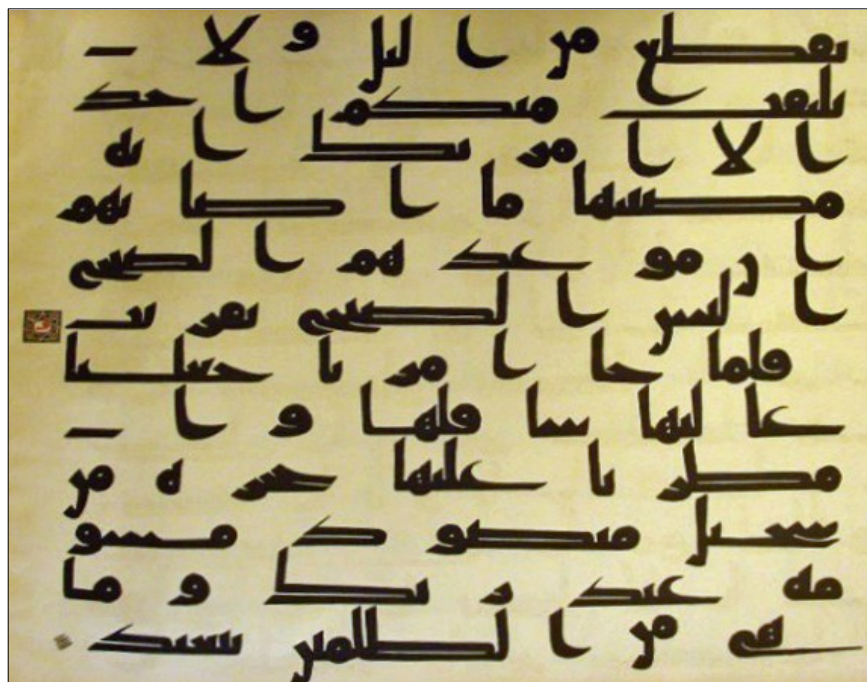 بقطع من اليل و لا
يلتفت منكم احد
الا امراتك انه
مصيبها ما اصابهم
ان موعدهم الصبح
اليس الصبح بقريب
فلما جا امرنا جعلنا
عاليها سافلها و ا
مطرنا عليها حجره من
سجيل منضود مسو
مه عند ربك و ما
هي من الظلمين ببعيد